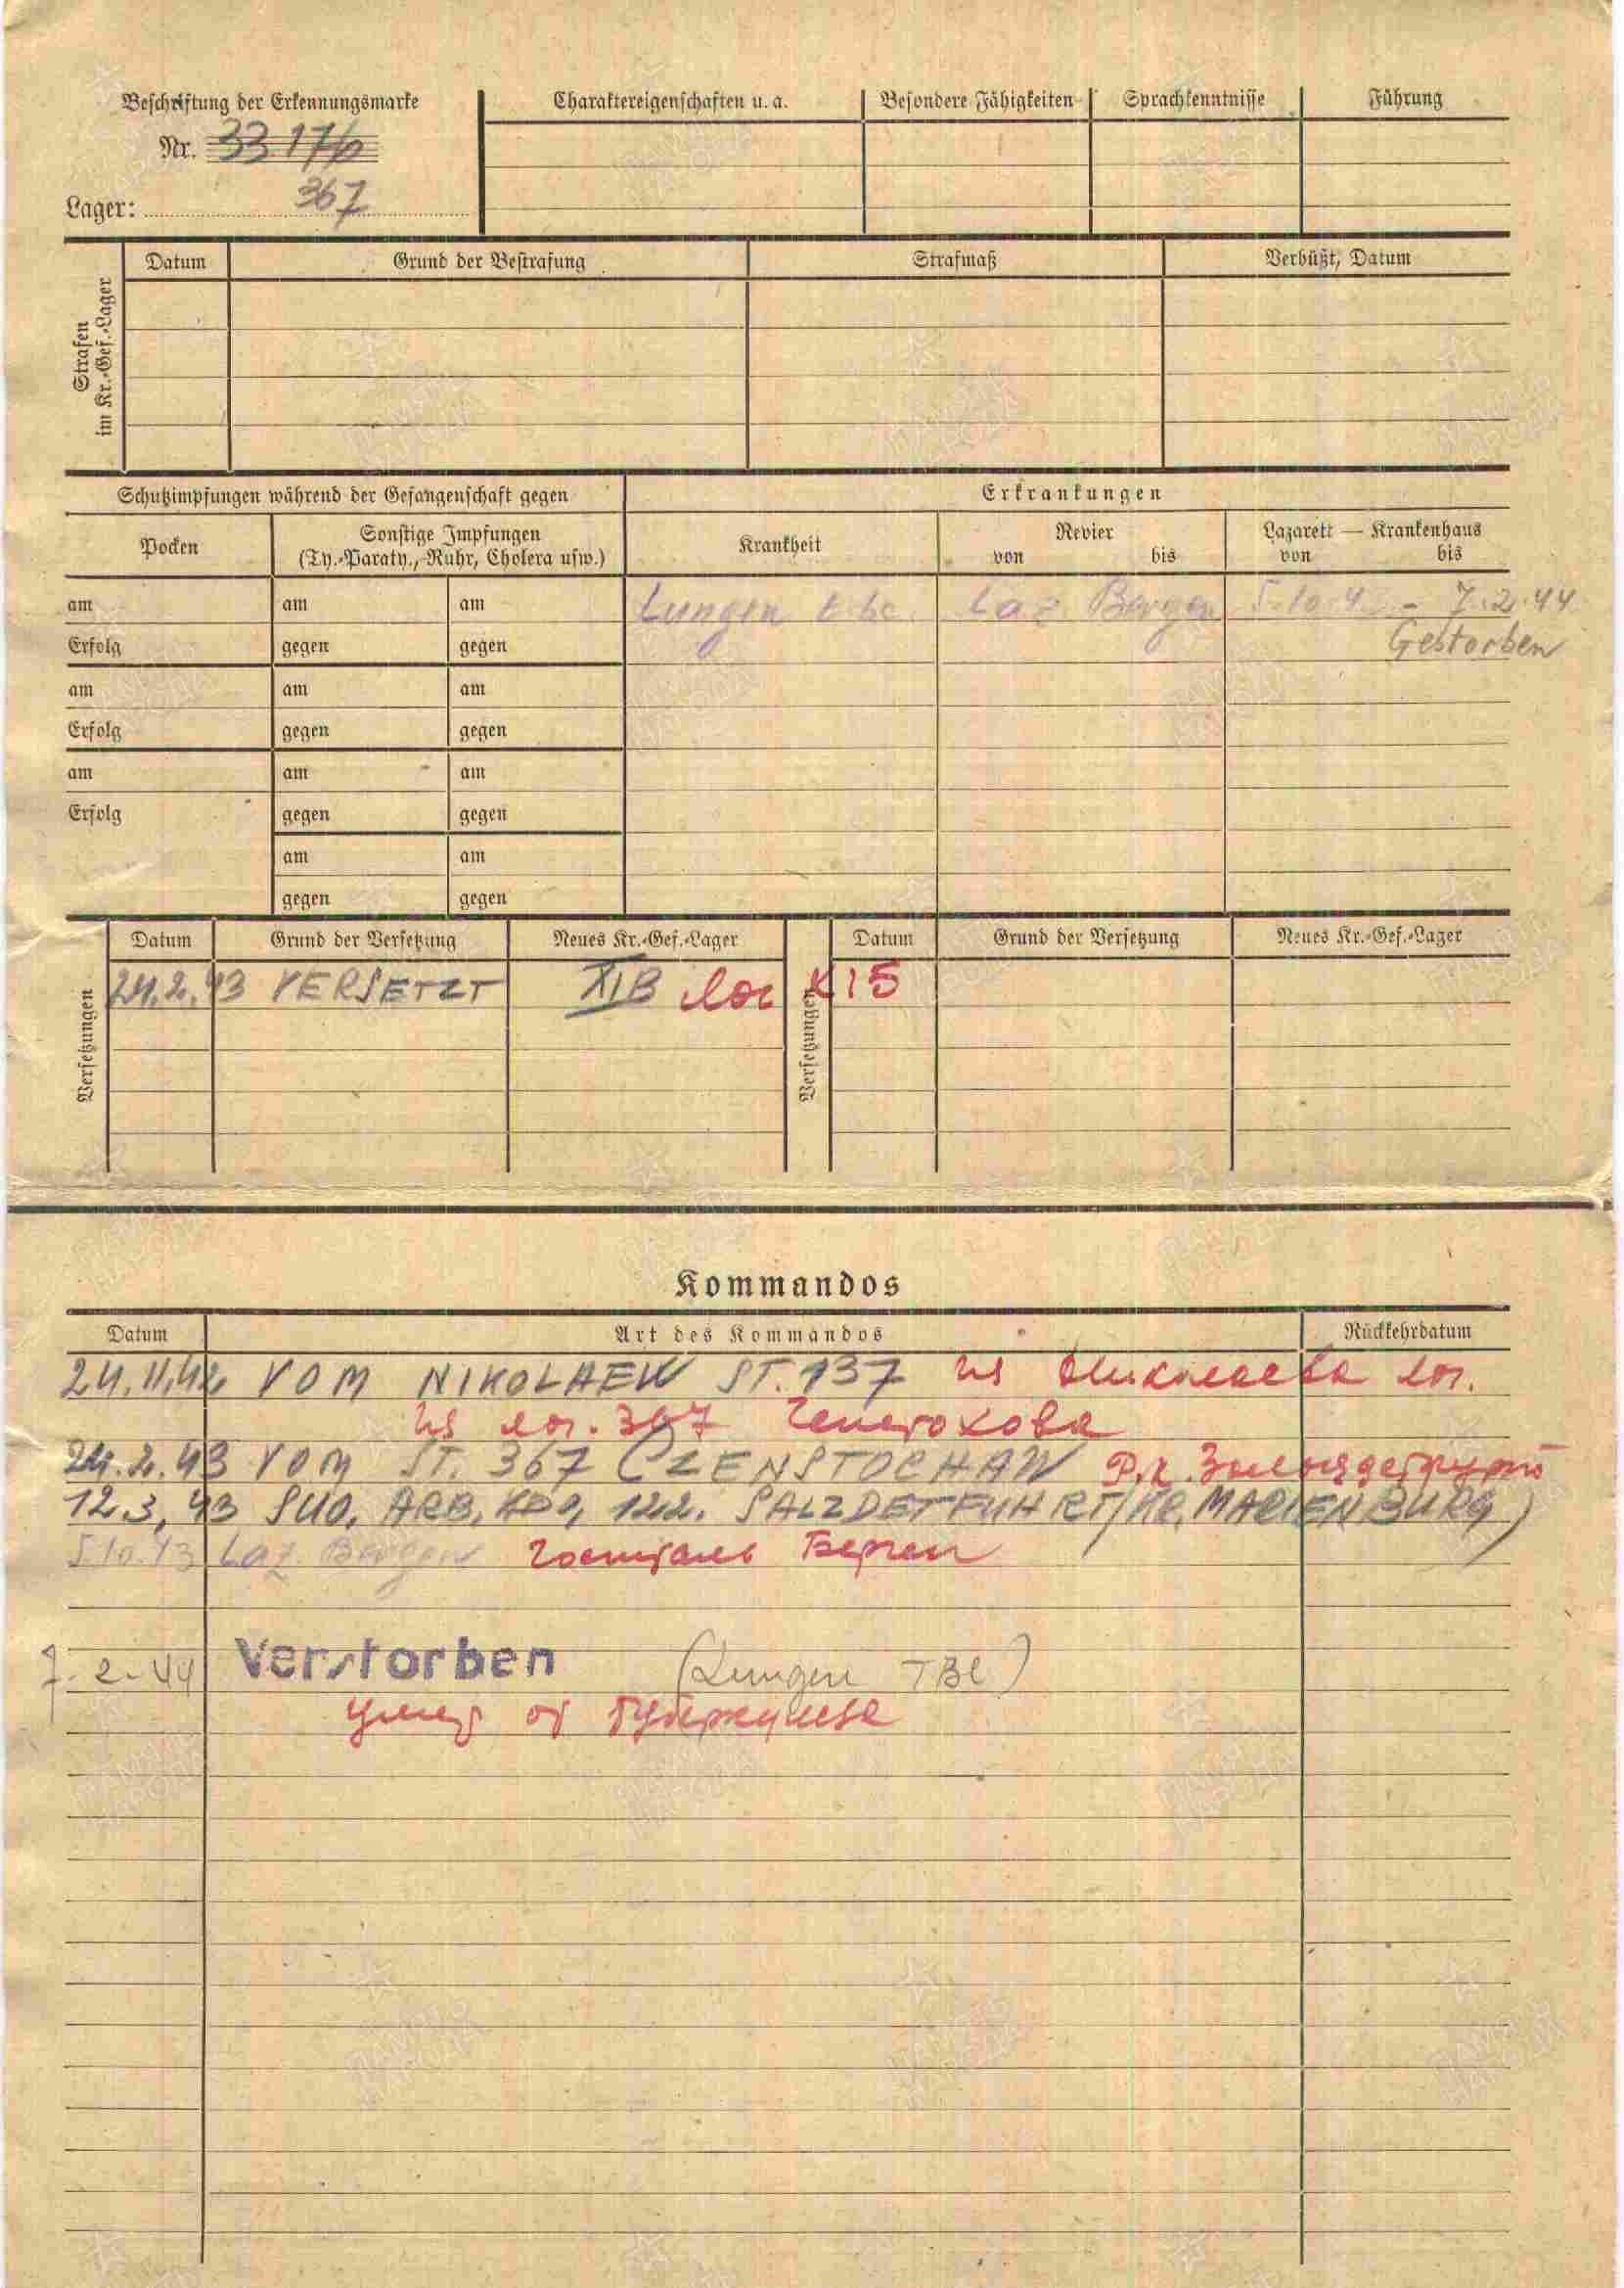 Beschriftung der Erkennungsmarke
Nr. 33176
Lager: 367
Charaktereigenschaften u. a. Besondere Fähigkeiten Sprachkenntnisse Führung
Strafen im Kr.-Gef.-Lager
Datum Grund der Bestrafung Strafmaß Verbüßt, Datum
Schutzimpfungen während der Gefangenschaft gegen Erkrankungen
Pocken Sonstige Impfungen (Ty.-Paraty.,-Ruhr, Cholera usw.) Krankheit Revier von bis Lazarett — Krankenhaus von bis
am am am Lungen tbc. Laz. Bergen 5.10.4 - 7.2.44
Erfolg gegen gegen Gestorben
am am am
Erfolg gegen gegen
am am am
Erfolg gegen gegen
am am
gegen gegen
Versetzungen Datum Grund der Versetzung Neues Kr.-Gef.-Lager Versetzungen Datum Grund der Versetzung Neues Kr.-Gef.-Lager
24.2.43 VERSETZT XIB
Kommandos
Datum Art des Kommandos Rückkehrdatum
24.11.42 VOM NIKOLAEW ST. 137 из Николаева лаг.
из лаг. 367 Ченстохова
24.2.43 VOM ST. 367 CZENSTOCHAW Р.к.
12.3.43 ARB. KDO, 122. SALZDETFUHRT/KR. MARIENBURG)
5.10.43 Laz. Bergen госпиталь Берген
7-2-44 Verstorben (Lungen TBC)
умер от туберкулеза